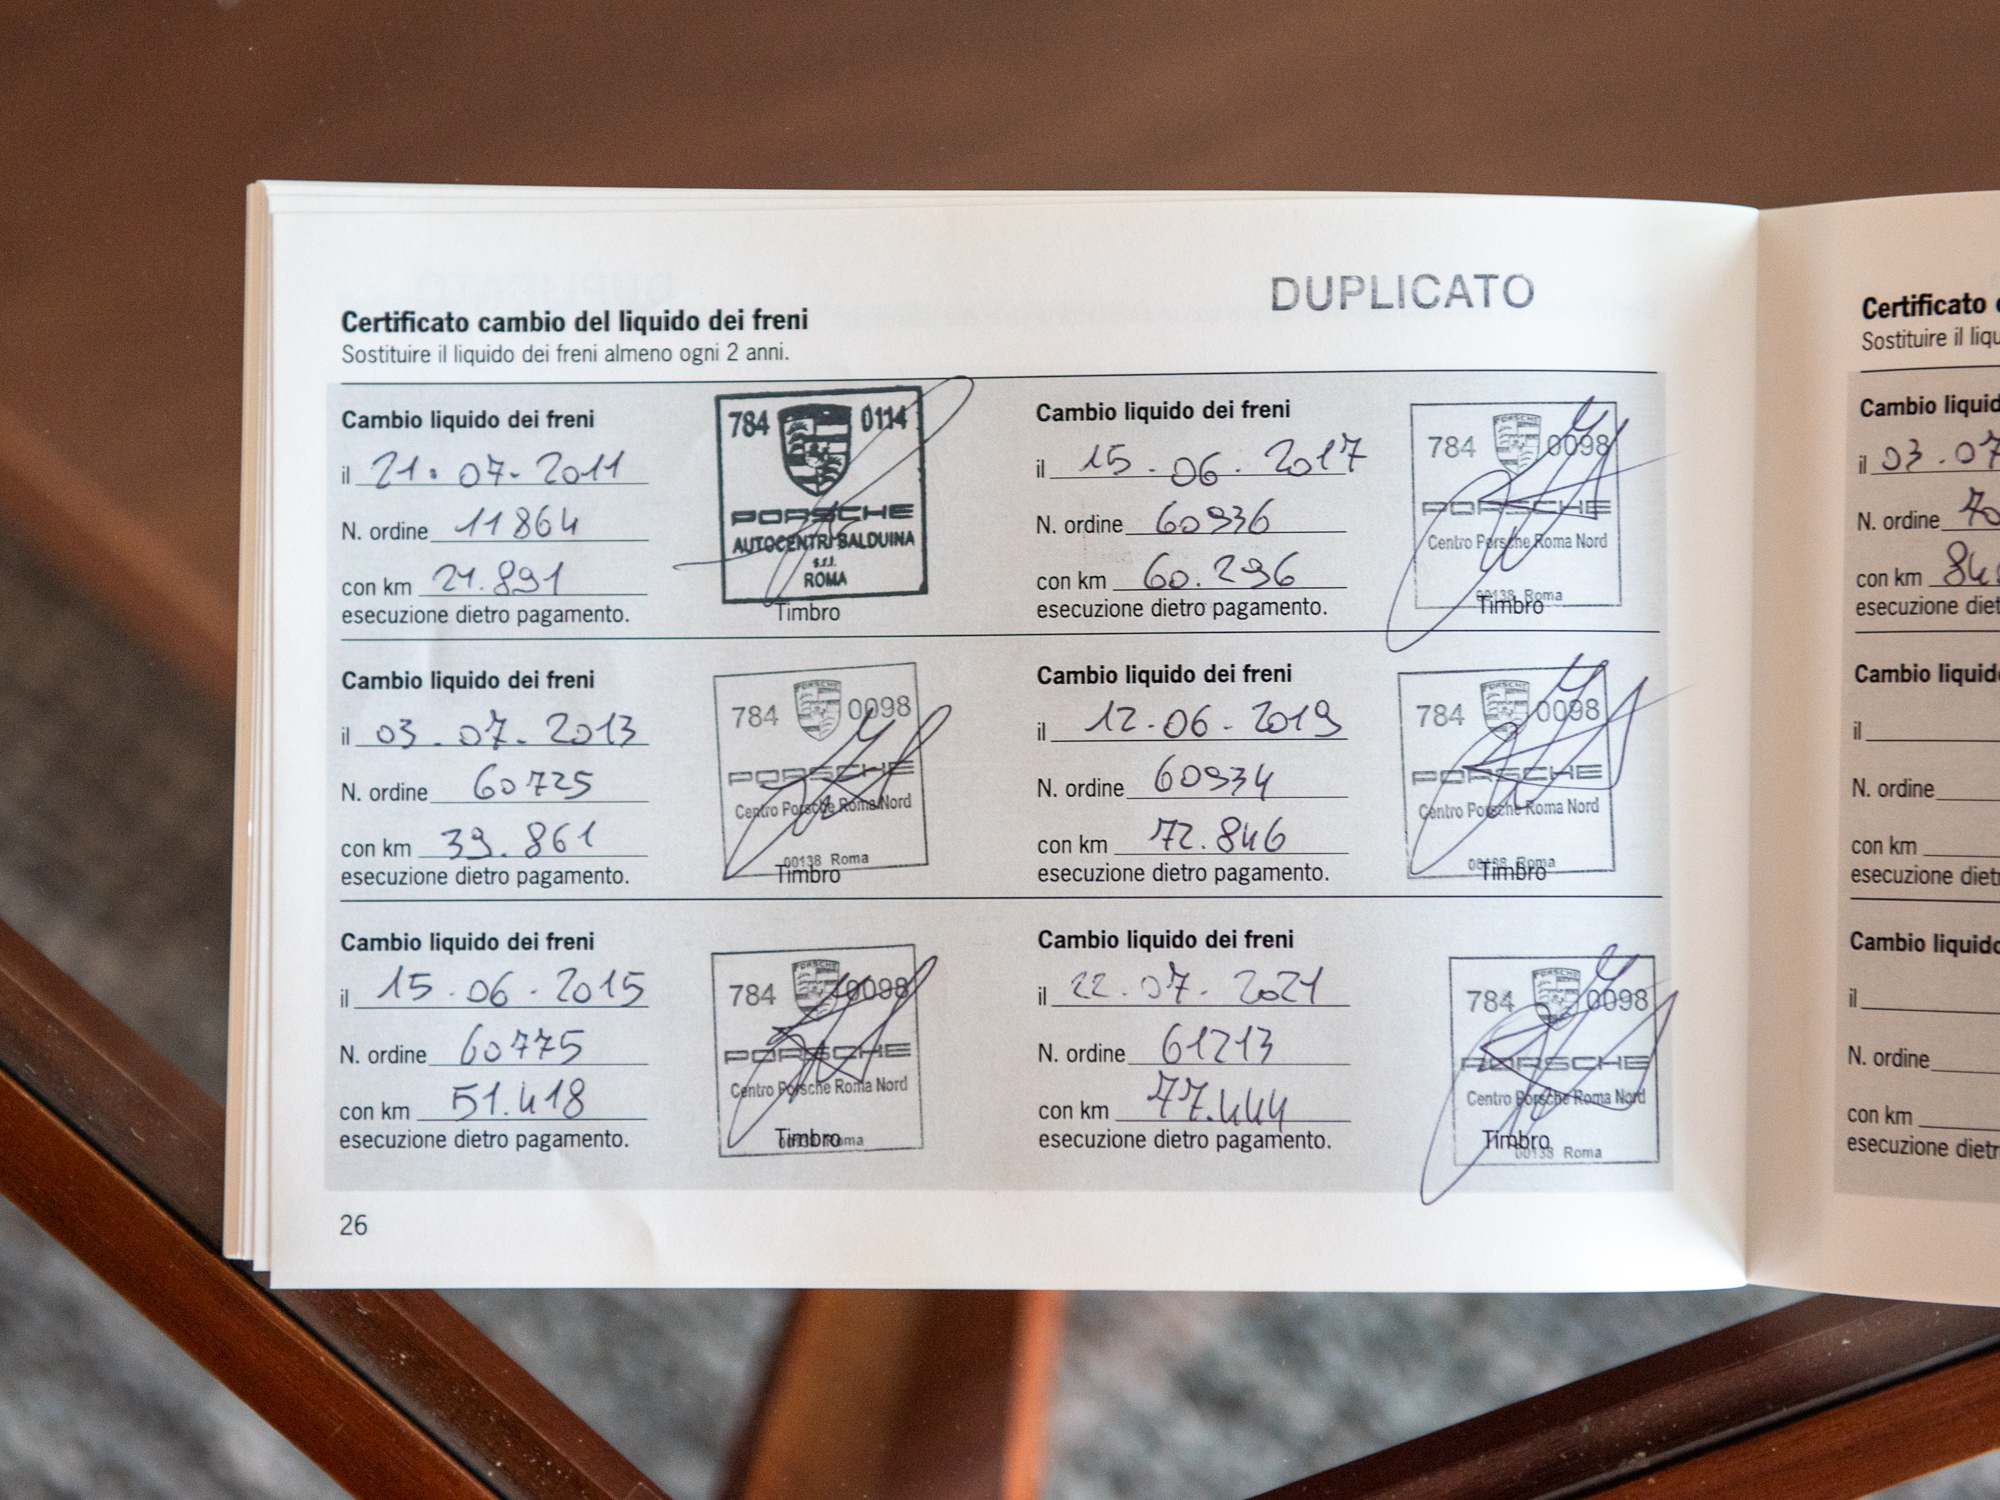 DUPLICATO
Certificato cambio del liquido dei freni
Sostituire il liquido dei freni almeno ogni 2 anni.
Cambio liquido dei freni
il 21.07.2011
N. ordine 11864
con km 21.891
esecuzione dietro pagamento.
784 0114
PORSCHE
AUTOCENTRI BALDUINA
s.r.l.
ROMA
Timbro
Cambio liquido dei freni
il 03.07.2013
N. ordine 60725
con km 39.861
esecuzione dietro pagamento.
PORSCHE
784 0098
PORSCHE
Centro Porsche Roma Nord
00138 Roma
Timbro
Cambio liquido dei freni
il 15.06.2015
N. ordine 60775
con km 51.418
esecuzione dietro pagamento.
PORSCHE
784 0098
PORSCHE
Centro Porsche Roma Nord
00138 Roma
Timbro
Cambio liquido dei freni
il 15.06.2017
N. ordine 60936
con km 60.296
esecuzione dietro pagamento.
PORSCHE
784 0098
PORSCHE
Centro Porsche Roma Nord
00138 Roma
Timbro
Cambio liquido dei freni
il 12.06.2019
N. ordine 60934
con km 72.846
esecuzione dietro pagamento.
PORSCHE
784 0098
PORSCHE
Centro Porsche Roma Nord
00138 Roma
Timbro
Cambio liquido dei freni
il 22.07.2021
N. ordine 61213
con km 77.444
esecuzione dietro pagamento.
PORSCHE
784 0098
PORSCHE
Centro Porsche Roma Nord
00138 Roma
Timbro
26
Certificato
Sostituire il liqu
Cambio liquid
il 03.07
N. ordine 70
con km 84
esecuzione diet
Cambio liquid
il
N. ordine
con km
esecuzione diet
Cambio liquid
il
N. ordine
con km
esecuzione diet